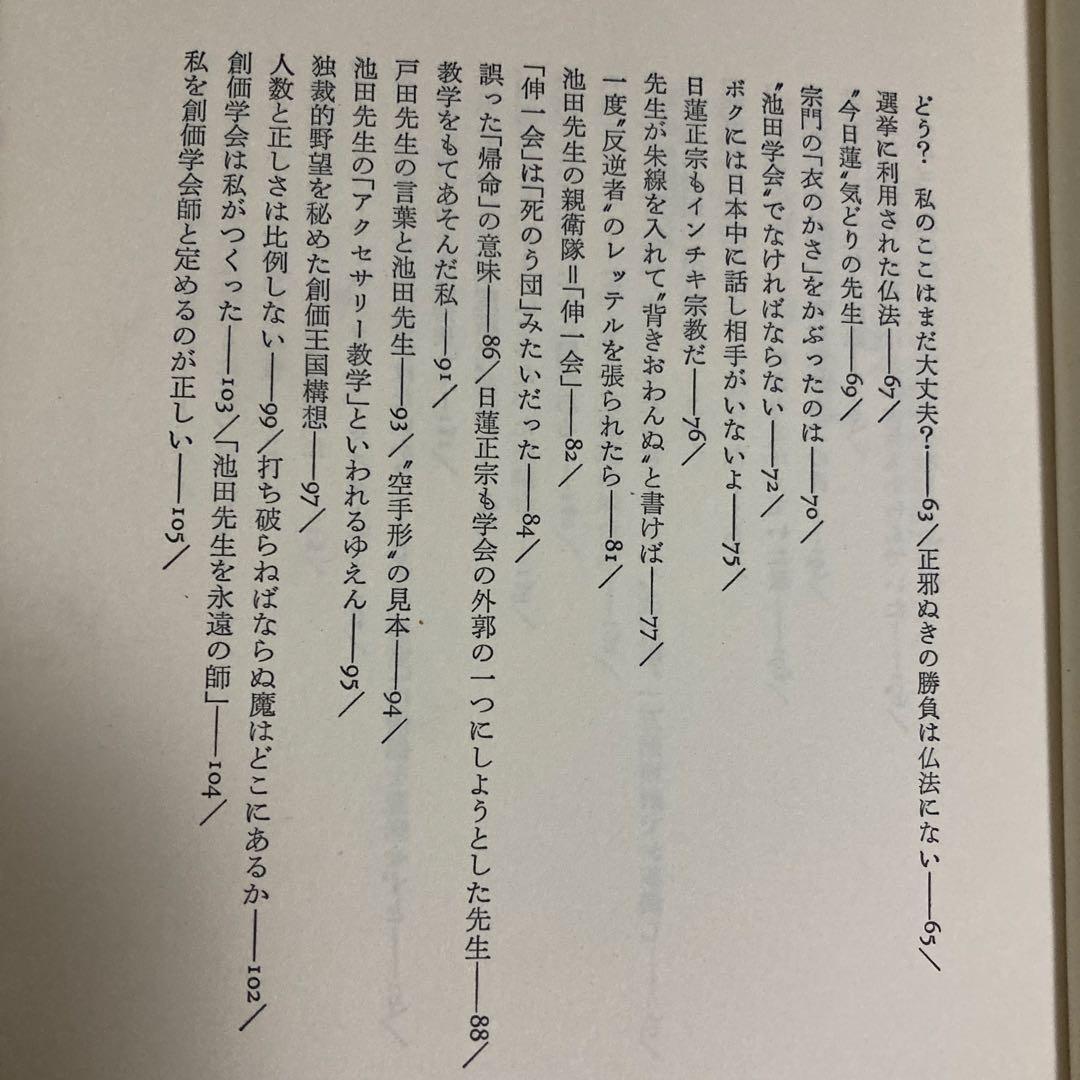 どう?　私のここはまだ大丈夫?――63/正邪ぬきの勝負は仏法にない――65/
選挙に利用された仏法――67/
〝今日蓮〟気どりの先生――69/
宗門の「衣のかさ」をかぶったのは――70/
〝池田学会〟でなければならない――72/
ボクには日本中に話し相手がいないよ――75/
日蓮正宗もインチキ宗教だ――76/
先生が朱線を入れて〝背きおわんぬ〟と書けば――77/
一度〝反逆者〟のレッテルを張られたら――81/
池田先生の親衛隊＝「伸一会」――82/
「伸一会」は「死のう団」みたいだった――84/
誤った「帰命」の意味――86/日蓮正宗も学会の外郭の一つにしようとした先生――88/
教学をもてあそんだ私――91/
戸田先生の言葉と池田先生――93/〝空手形〟の見本――94/
池田先生の「アクセサリー教学」といわれるゆえん――95/
独裁的野望を秘めた創価王国構想――97/
人数と正しさは比例しない――99/打ち破らねばならぬ魔はどこにあるか――102/
創価学会は私がつくった――103/「池田先生を永遠の師」――104/
私を創価学会師と定めるのが正しい――105/